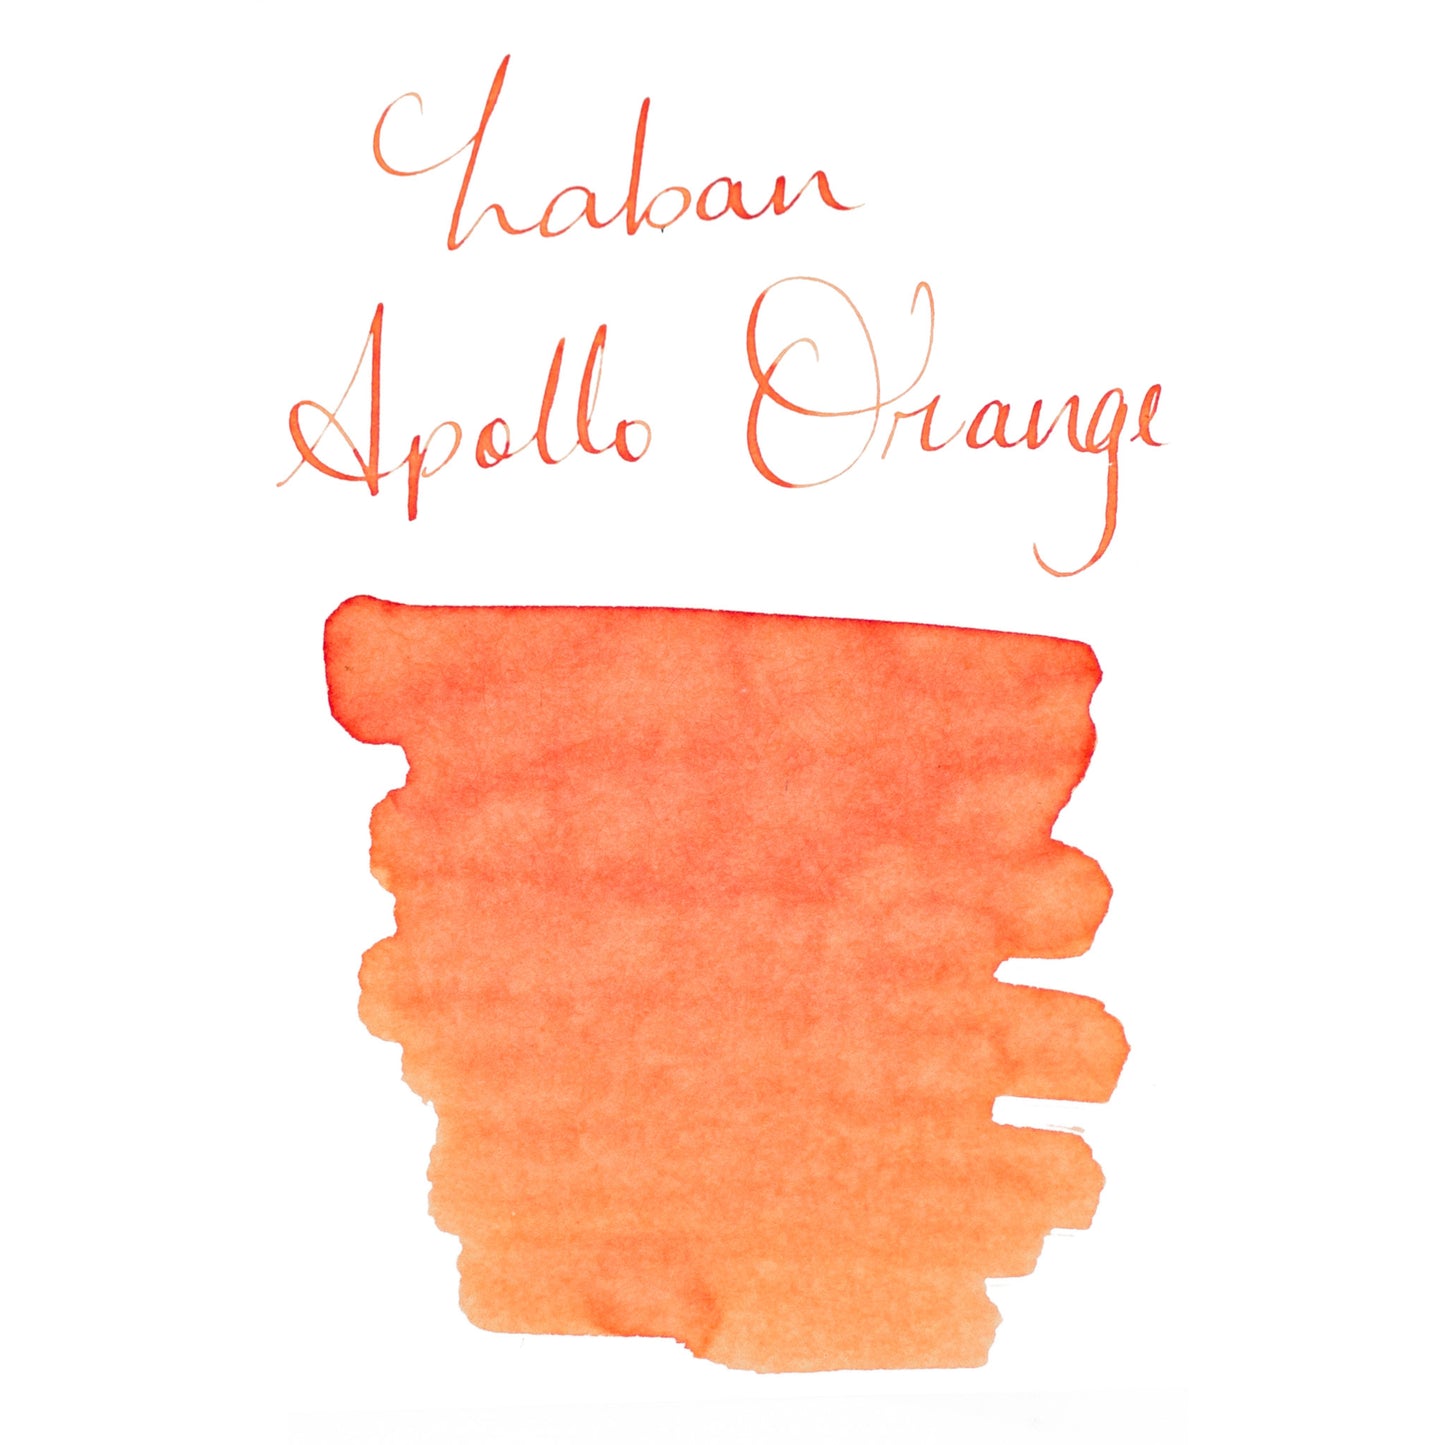 Laban
Apollo Orange